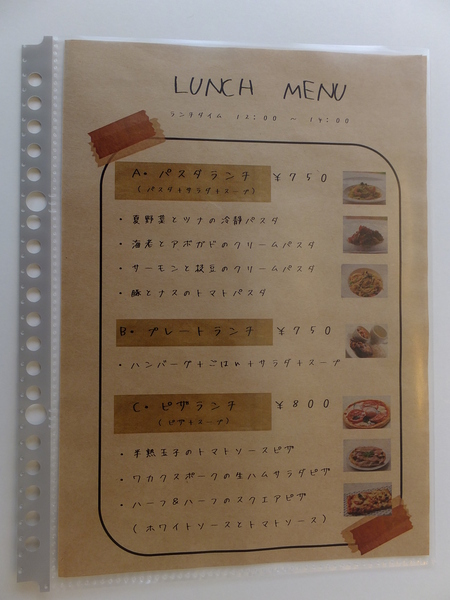 LUNCH MENU
ランチタイム 12:00 ~ 14:00
A. パスタランチ ¥750
(パスタ+サラダ+スープ)
・夏野菜とツナの冷静パスタ
・海老とアボガドのクリームパスタ
・サーモンと枝豆のクリームパスタ
・豚とナスのトマトパスタ
B. プレートランチ ¥750
・ハンバーグ+ごはん+サラダ+スープ
C. ピザランチ ¥800
(ピザ+スープ)
・半熟玉子のトマトソースピザ
・ワカクスポークの生ハムサラダピザ
・ハーフ&ハーフのスクエアピザ
(ホワイトソースとトマトソース)